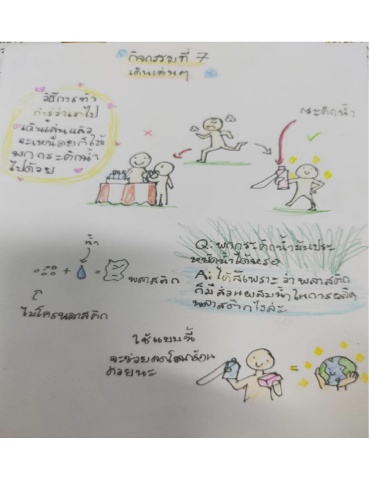 กิจกรรมที่ 7
เดินเล่นๆ
วิธีการทำ
ถ้าเราไป
เดินเล่นแล้ว
จะเหนื่อยก็ให้
พกกระติกน้ำ
ไปด้วย
กระติกน้ำ
น้ำ
พลาสติก
ไมโครพลาสติก
Q: พกกระติกน้ำมันประ
หยัดน้ำได้หรอ
A: ได้สิเพราะว่าพลาสติก
ก็มีส่วนผสมน้ำในการผลิต
พลาสติกไงล่ะ
ใช้แบบนี้
จะช่วยลดโลกร้อน
ด้วยนะ